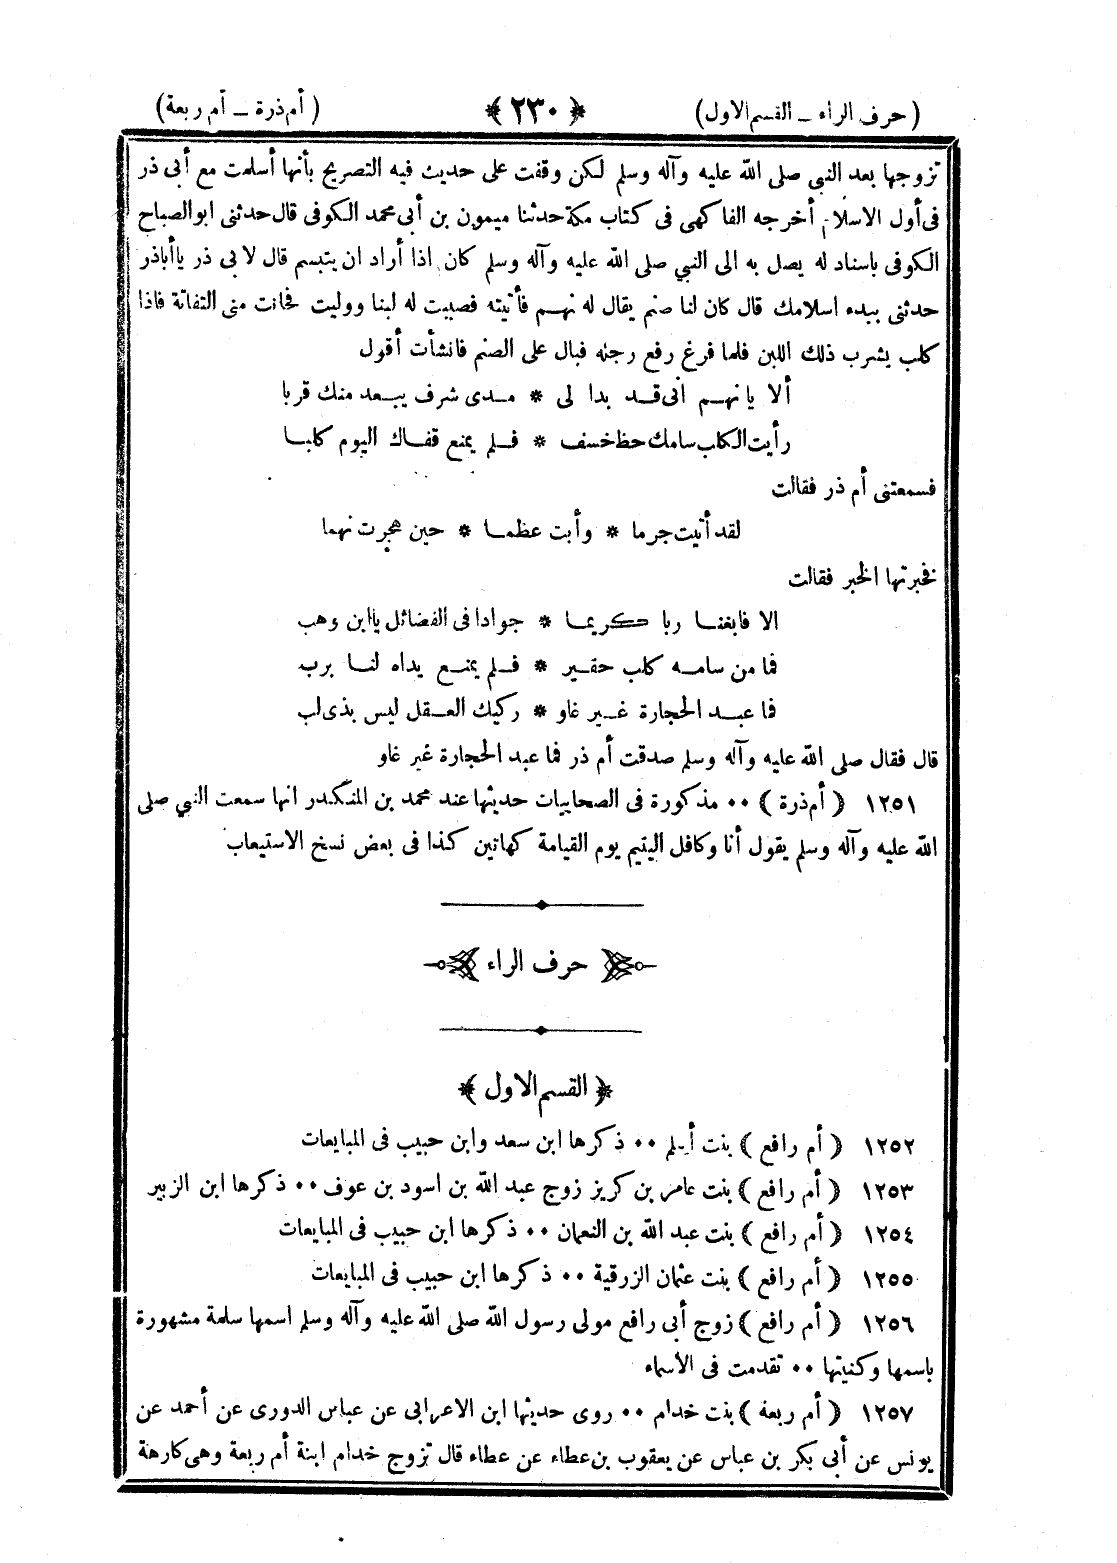 (حرف الراء ــ القسم الاول) ﴿ ٢٣٠ ﴾ (أم ذرة ــ أم ربعة)
تزوجها بعد النبي صلى الله عليه وآله وسلم لكن وقفت على حديث فيه التصريح بأنها أسلمت مع أبى ذر
فى أول الاسلام أخرجه الفاكهى فى كتاب مكة حدثنا ميمون بن أبى محمد الكوفى قال حدثنى ابو الصباح
الكوفى باسناد له يصل به الى النبي صلى الله عليه وآله وسلم كان اذا أراد ان يتبسم قال لابى ذر ياأباذر
حدثنى ببدء اسلامك قال كان لنا صنم يقال له نهــم فأتيته فصببت له لبنا ووليت فحانت منى التفاتة فاذا
كلب يشرب ذلك اللبن فلما فرغ رفع رجله فبال على الصنم فانشأت أقول
ألا يا نهــم انى قــد بدا لى * مــدى شرف يبــعد منك قربا
رأيت الكلب سامك حظ خسف * فــلم يمنع قفــاك اليوم كلبــا
فسمعتنى أم ذر فقالت
لقد أتيت جرما * وأبت عظمــا * حين هجرت نهما
فخبرتها الخبر فقالت
الا فابغنــا ربا كريمــا * جوادا فى الفضائل ياابن وهب
فما من سامــه كلب حقــير * فــلم يمنــع يداه لنــا برب
فما عبــد الحجارة غــير غاو * ركيك العــقل ليس بذى لب
قال فقال صلى الله عليه وآله وسلم صدقت أم ذر فما عبد الحجارة غير غاو
١٢٥١ ﴿ أم ذرة ﴾ ٠٠ مذكورة فى الصحابيات حديثها عند محمد بن المنكدر انها سمعت النبي صلى
الله عليه وآله وسلم يقول أنا وكافل اليتيم يوم القيامة كهاتين كذا فى بعض نسخ الاستيعاب
حرف الراء
﴿ القسم الاول ﴾
١٢٥٢ ﴿ أم رافع ﴾ بنت أسلم ٠٠ ذكرها ابن سعد وابن حبيب فى المبايعات
١٢٥٣ ﴿ أم رافع ﴾ بنت عامر بن كريز زوج عبد الله بن اسود بن عوف ٠٠ ذكرها ابن الزبير
١٢٥٤ ﴿ أم رافع ﴾ بنت عبد الله بن النعمان ٠٠ ذكرها ابن حبيب فى المبايعات
١٢٥٥ ﴿ أم رافع ﴾ بنت عثمان الزرقية ٠٠ ذكرها ابن حبيب فى المبايعات
١٢٥٦ ﴿ أم رافع ﴾ زوج أبى رافع مولى رسول الله صلى الله عليه وآله وسلم اسمها سلمة مشهورة
باسمها وكنيتها ٠٠ تقدمت فى الأسماء
١٢٥٧ ﴿ أم ربعة ﴾ بنت خدام ٠٠ روى حديثها ابن الاعرابى عن عباس الدورى عن أحمد عن
يونس عن أبى بكر بن عباس عن يعقوب بن عطاء عن عطاء قال تزوج خدام ابنة أم ربعة وهى كارهة